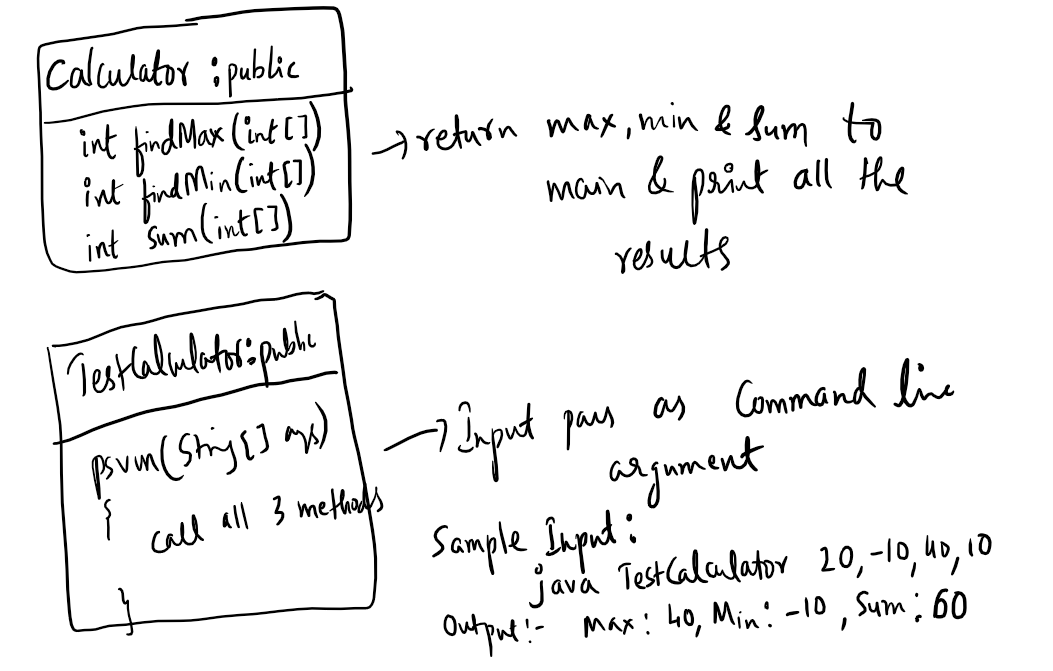 Calculator : public
int findMax(int[])
int findMin(int[])
int sum(int[])
→ return max, min & sum to
main & print all the
results
TestCalculator: public
psvm(String[] args)
{
call all 3 methods
}
→ Input pass as Command line
argument
Sample Input:
java TestCalculator 20, -10, 40, 10
Output:- Max: 40, Min: -10, Sum: 60